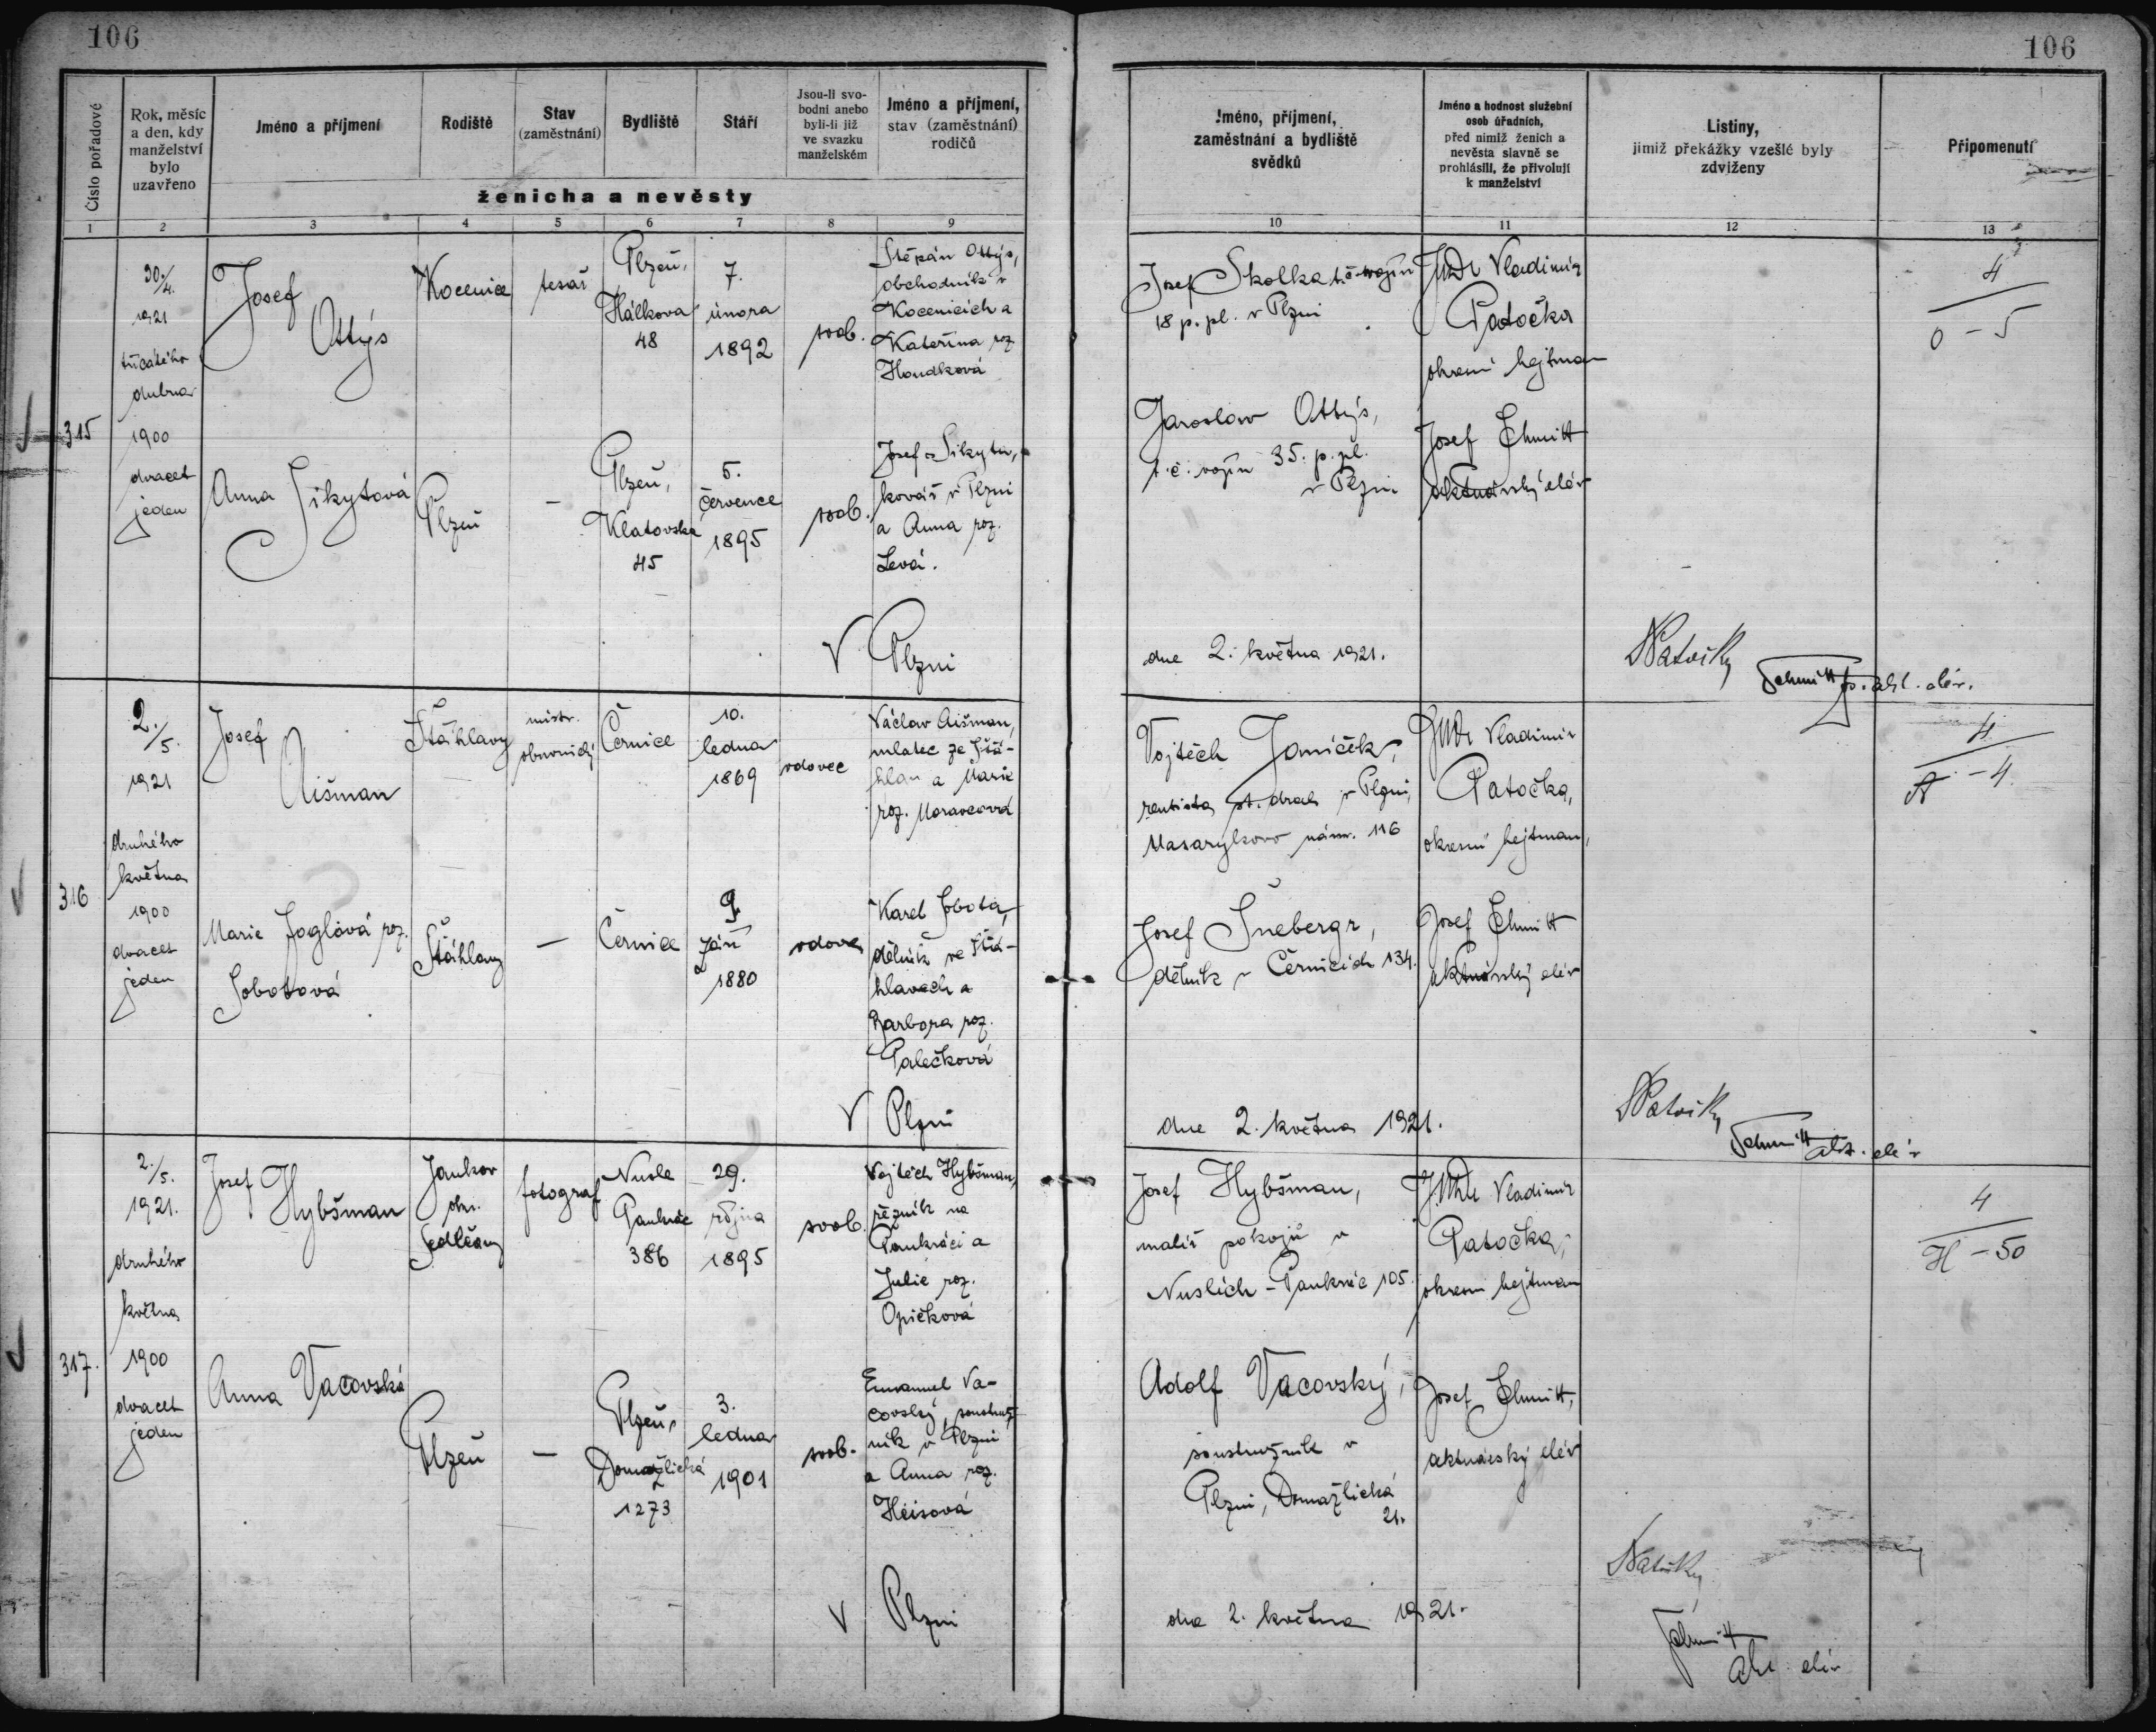 106
106
Číslo pořadové
Rok, měsíc
a den, kdy
manželství
bylo
uzavřeno
Jméno a příjmení
Rodiště
Stav
(zaměstnání)
Bydliště
Stáří
Jsou-li svo-
bodni anebo
byli-li již
ve svazku
manželském
Jméno a příjmení,
stav (zaměstnání)
rodičů
ženicha a nevěsty
Jméno, příjmení,
zaměstnání a bydliště
svědků
Jméno a hodnost služební
osob úředních,
před nimiž ženich a
nevěsta slavně se
prohlásili, že přivolují
k manželství
Listiny,
jimiž překážky vzešlé byly
zdviženy
Připomenutí
1 2 3 4 5 6 7 8 9 10 11 12 13
315
30./4.
1921
třicátého
dubna
1900
dvacet
jeden
Josef
Ottýs
Kocenice
tesař
Plzeň,
Hálkova
48
7.
února
1892
svob.
Štěpán Ottýs,
obchodník v
Kocenicích a
Kateřina roz.
Houdková
Anna Sikytová
Plzeň
—
Plzeň,
Klatovská
45
5.
července
1895
svob.
Josef Sikyta,
kovář v Plzni
a Anna roz.
Levá.
Josef Skolka t. č. vojín
18 p. pl. v Plzni
Jaroslav Ottýs,
t. č. vojín 35. p. pl.
v Plzni
JUDr Vladimír
Patočka
okresní hejtman
Josef Schmitt
aktuárský elév
4
O – 5
V Plzni
dne 2. května 1921.
Schmitt akt. elév.
316
2./5.
1921
druhého
května
1900
dvacet
jeden
Josef
Aišman
Štáhlavy
mistr
obuvnický
Černice
10.
ledna
1869
vdovec
Václav Aišman,
mlatec ze Štá-
hlav a Marie
roz. Moravcová
Marie Foglová roz.
Sobotová
Štáhlavy
—
Černice
9.
září
1880
vdova
Karel Sobota,
dělník ve Štá-
hlavech a
Barbora roz.
Palečková
Vojtěch Janíček,
rentista st. drah v Plzni,
Masarykovo nám. 116
Josef Šnebergr,
dělník v Černicích 134.
JUDr Vladimír
Patočka,
okresní hejtman,
Josef Schmitt
aktuárský elév
4
A – 4
V Plzni
dne 2. května 1921.
Schmitt akt. elév
317.
2./5.
1921.
druhého
května
1900
dvacet
jeden
Josef Hybšman
Jankov
okr.
Sedlčany
fotograf
Nusle
Pankrác
386
29.
října
1895
svob.
Vojtěch Hybšman,
řezník na
Pankráci a
Julie roz.
Opičková
Anna Vacovská
Plzeň
—
Plzeň,
Domažlická
1273
3.
ledna
1901
svob.
Emanuel Va-
covský, soustruž-
ník v Plzni
a Anna roz.
Heisová
Josef Hybšman,
malíř pokojů v
Nuslích – Pankrác 105.
Adolf Vacovský,
soustružník v
Plzni, Domažlická
21.
JUDr Vladimír
Patočka,
okresní hejtman
Josef Schmitt,
aktuárský elév
4
H – 50
V Plzni
dne 2. května 1921.
Schmitt
akt. elév